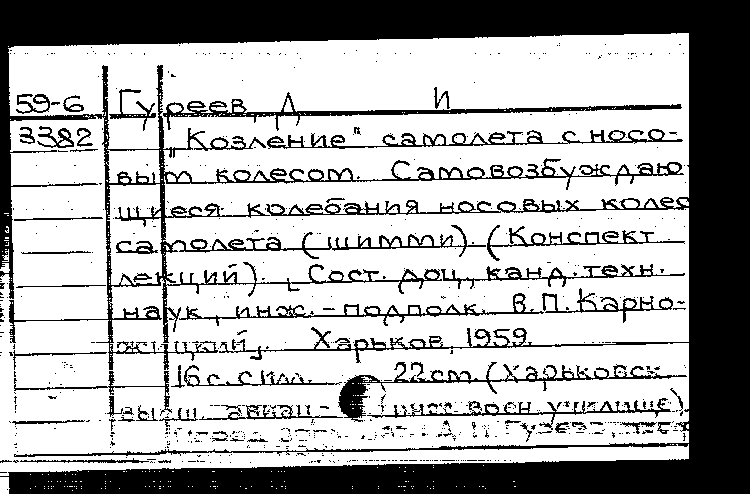 59-6 Гуреев, Д И
3382 „Козление" самолета с носо-
вым колесом. Самовозбуждаю
щиеся колебания носовых колес
самолета (шимми). (Конспект
лекций). [Сост. доц., канд. техн.
наук, инж.-подполк. В.П. Карно-
жицкий]. Харьков, 1959.
16 с. с илл. 22 cm. (Харьковск
высш. авиац.- инж воен училище).
Д И Гуреев,